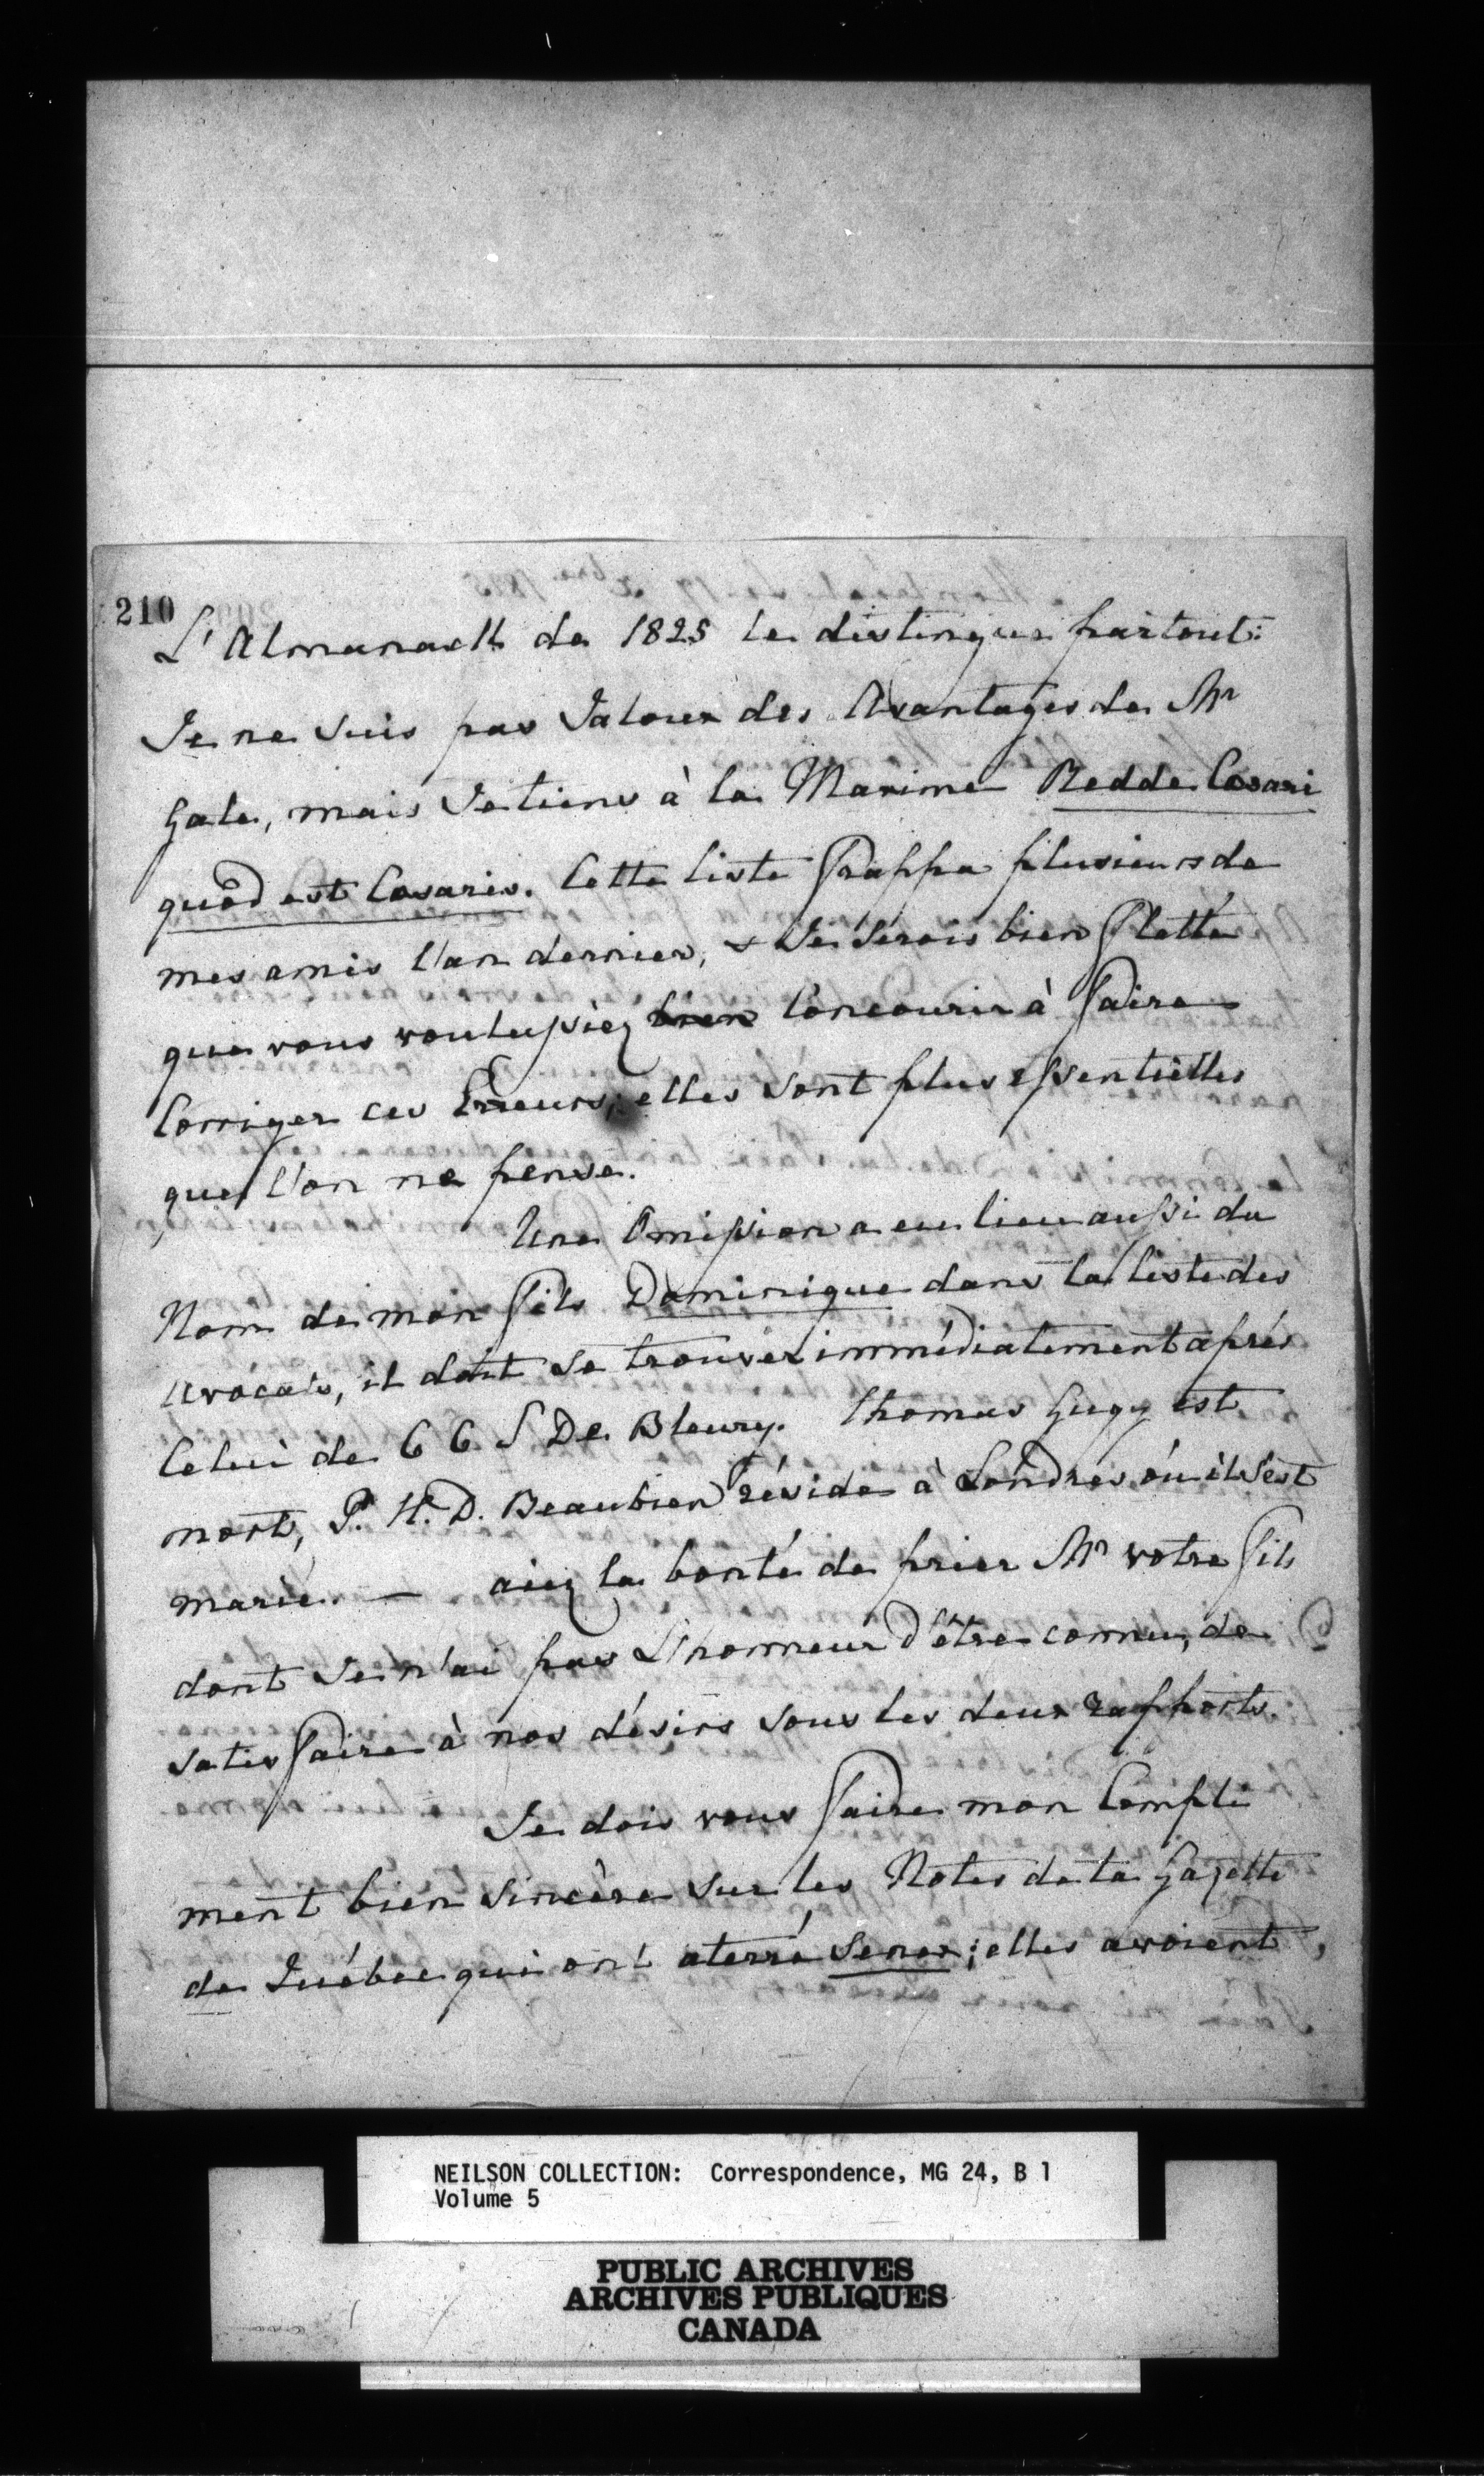 210
L'Almanach de 1825 le distingue partout:
Je ne suis pas Jaloux des Avantages de Mr
Gale, mais Je tiens à la Maxime Redde Cæsari
quôd est Cæsaris. Cette liste frappa plusieurs de
mes amis l'an dernier, & Je serois bien flatté
que vous voulussiez bien Concourir à faire
Corriger ces Erreurs; elles sont plus essentielles
que l'on ne pense.
Une Omission a eu lieu aussi du
Nom de mon fils Dominique dans la liste des
avocats, il doit se trouver immédiatement après
Celui de C C S De Bleury. Thomas Gugy est
mort, P. H. D. Beaubien réside à Londres où il s'est
marié. — aiez la bonté de prier Mr votre fils
dont Je n'ai pas L'honneur d'être connu, de
satisfaire à nos désirs sous les deux rapports.
Je dois vous faire mon Compli
ment bien sincère sur les Notes de la Gazette
de Québec qui ont aterré Senex; elles avoient,
NEILSON COLLECTION: Correspondence, MG 24, B 1
Volume 5
PUBLIC ARCHIVES
ARCHIVES PUBLIQUES
CANADA